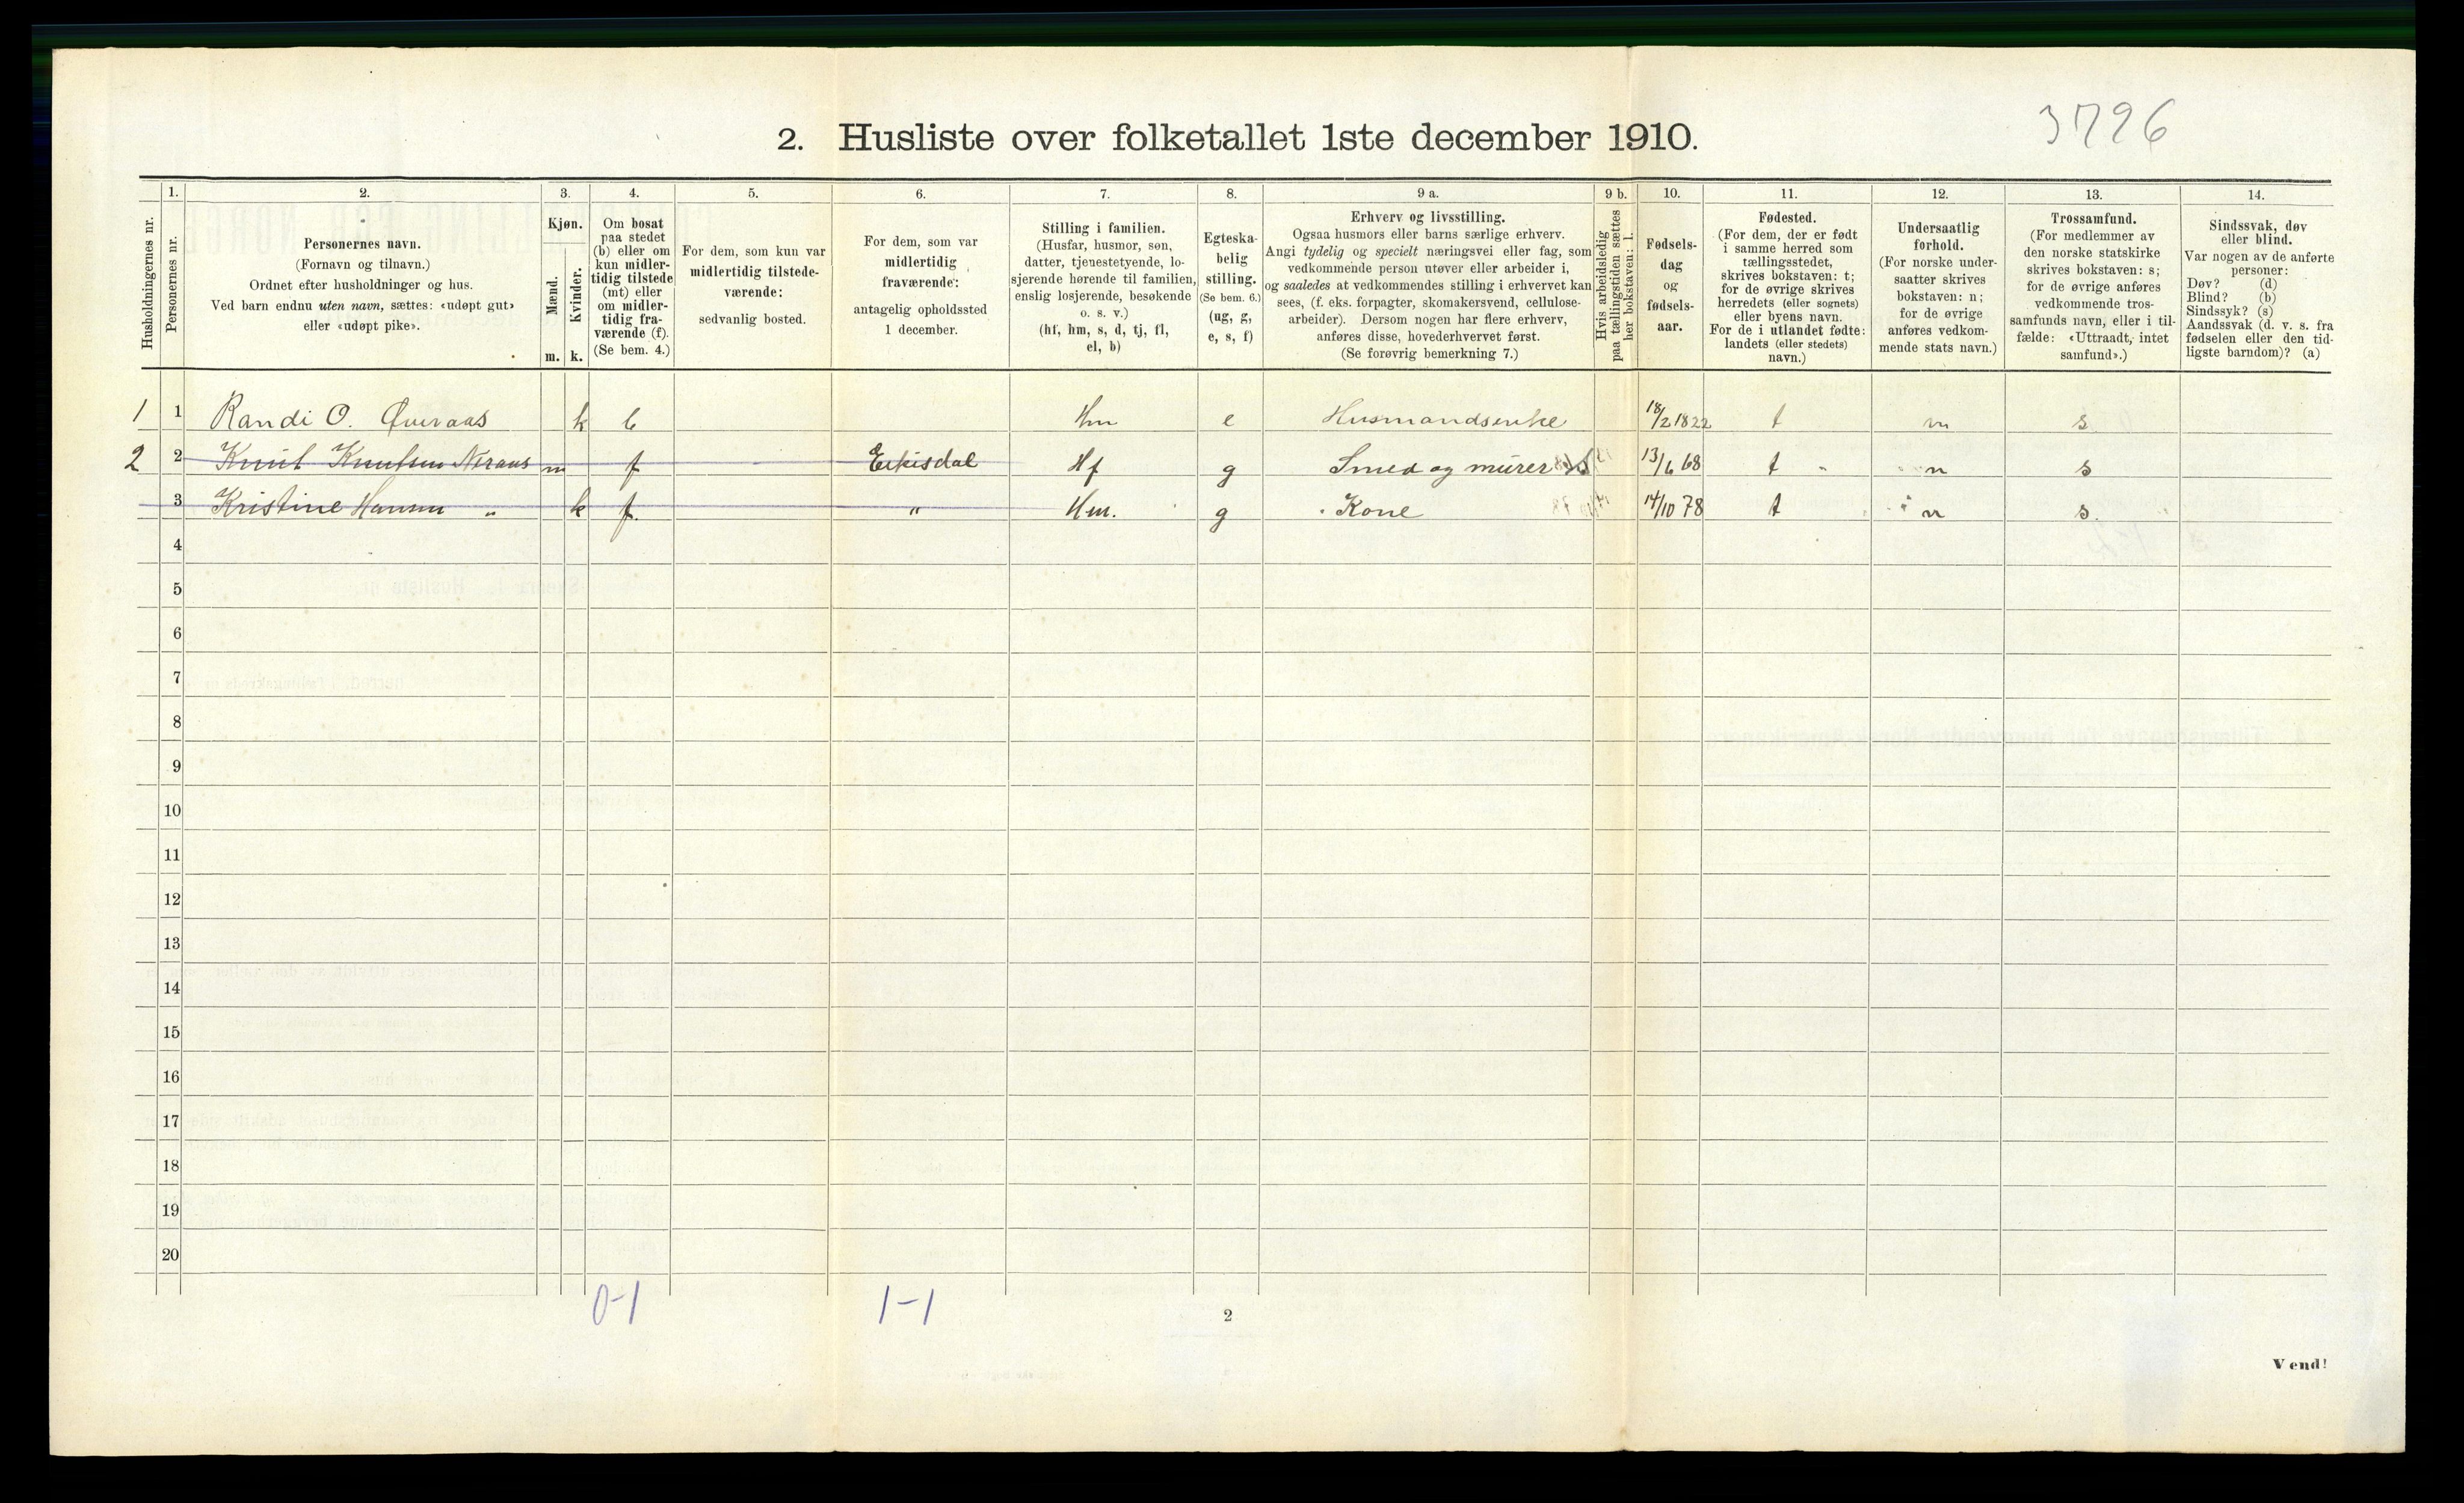 3796
2. Husliste over folketallet 1ste december 1910.
Husholdningernes nr.
1.
Personernes nr.
2.
Personernes navn.
(Fornavn og tilnavn.)
Ordnet efter husholdninger og hus.
Ved barn endnu uten navn, sættes: «udøpt gut»
eller «udøpt pike».
3.
Kjøn.
Mænd.
Kvinder.
m. k.
4.
Om bosat
paa stedet
(b) eller om
kun midler-
tidig tilstede
(mt) eller
om midler-
tidig fra-
værende (f).
(Se bem. 4.)
5.
For dem, som kun var
midlertidig tilstede-
værende:
sedvanlig bosted.
6.
For dem, som var
midlertidig
fraværende:
antagelig opholdssted
1 december.
7.
Stilling i familien.
(Husfar, husmor, søn,
datter, tjenestetyende, lo-
sjerende hørende til familien,
enslig losjerende, besøkende
o. s. v.)
(hf, hm, s, d, tj, fl,
el, b)
8.
Egteska-
belig
stilling.
(Se bem. 6.)
(ug, g,
e, s, f)
9 a.
Erhverv og livsstilling.
Ogsaa husmors eller barns særlige erhverv.
Angi tydelig og specielt næringsvei eller fag, som
vedkommende person utøver eller arbeider i,
og saaledes at vedkommendes stilling i erhvervet kan
sees, (f. eks. forpagter, skomakersvend, cellulose-
arbeider). Dersom nogen har flere erhverv,
anføres disse, hovederhvervet først.
(Se forøvrig bemerkning 7.)
9 b.
Hvis arbeidsledig
paa tællingstiden sættes
her bokstaven: l.
10.
Fødsels-
dag
og
fødsels-
aar.
11.
Fødested.
(For dem, der er født
i samme herred som
tællingsstedet,
skrives bokstaven: t;
for de øvrige skrives
herredets (eller sognets)
eller byens navn.
For de i utlandet fødte:
landets (eller stedets)
navn.)
12.
Undersaatlig
forhold.
(For norske under-
saatter skrives
bokstaven: n;
for de øvrige
anføres vedkom-
mende stats navn.)
13.
Trossamfund.
(For medlemmer av
den norske statskirke
skrives bokstaven: s;
for de øvrige anføres
vedkommende tros-
samfunds navn, eller i til-
fælde: «Uttraadt, intet
samfund».)
14.
Sindssvak, døv
eller blind.
Var nogen av de anførte
personer:
Døv? (d)
Blind? (b)
Sindssyk? (s)
Aandssvak (d. v. s. fra
fødselen eller den tid-
ligste barndom)? (a)
1 1 Randi O. Øveraas k b Hm e Husmandsenke 18/2 1822 t n s
2 2 Knut Knutsen Neraas m f Eikisdal Hf g Smed og murer 13/6 68 t n s
3 Kristine Hansen " k f " Hm. g Kone 14/10 78 t n s
4
5
6
7
8
9
10
11
12
13
14
15
16
17
18
19
20
0-1 1-1
2
Vend!